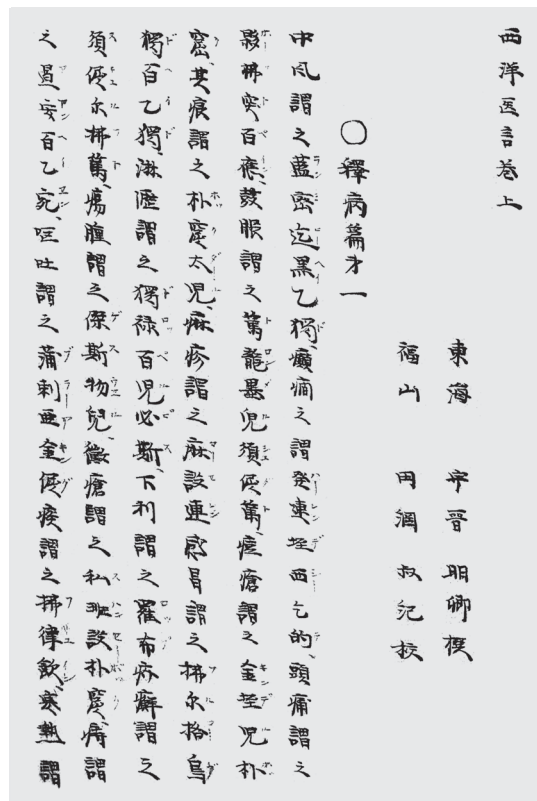 西洋医言巻上
東海 宇晋 明卿 撰
福山 円綱 叔紀 校
〇釋病篇才一
中風謂之藍密迄黒乙獨、癲癇之謂発東垤西乞的、頭痛謂之
夥拂突百瘛、鼓脹謂之萬龍墨児須便萬、痘瘡謂之金垤児朴
窟、其痕謂之朴窟太児、麻疹謂之麻設連、感冒謂之拂尔格烏
獨百乙獨、淋瀝謂之獨禄百児必斯、下利謂之羅布、疥癬謂之
須便尔拂萬、瘍腫謂之傑斯物児、黴瘡謂之私班設朴窟、痔謂
之㬎安百乙宛、嘔吐謂之蒲剌亜金便、痰謂之拂律歛、寒熱謂